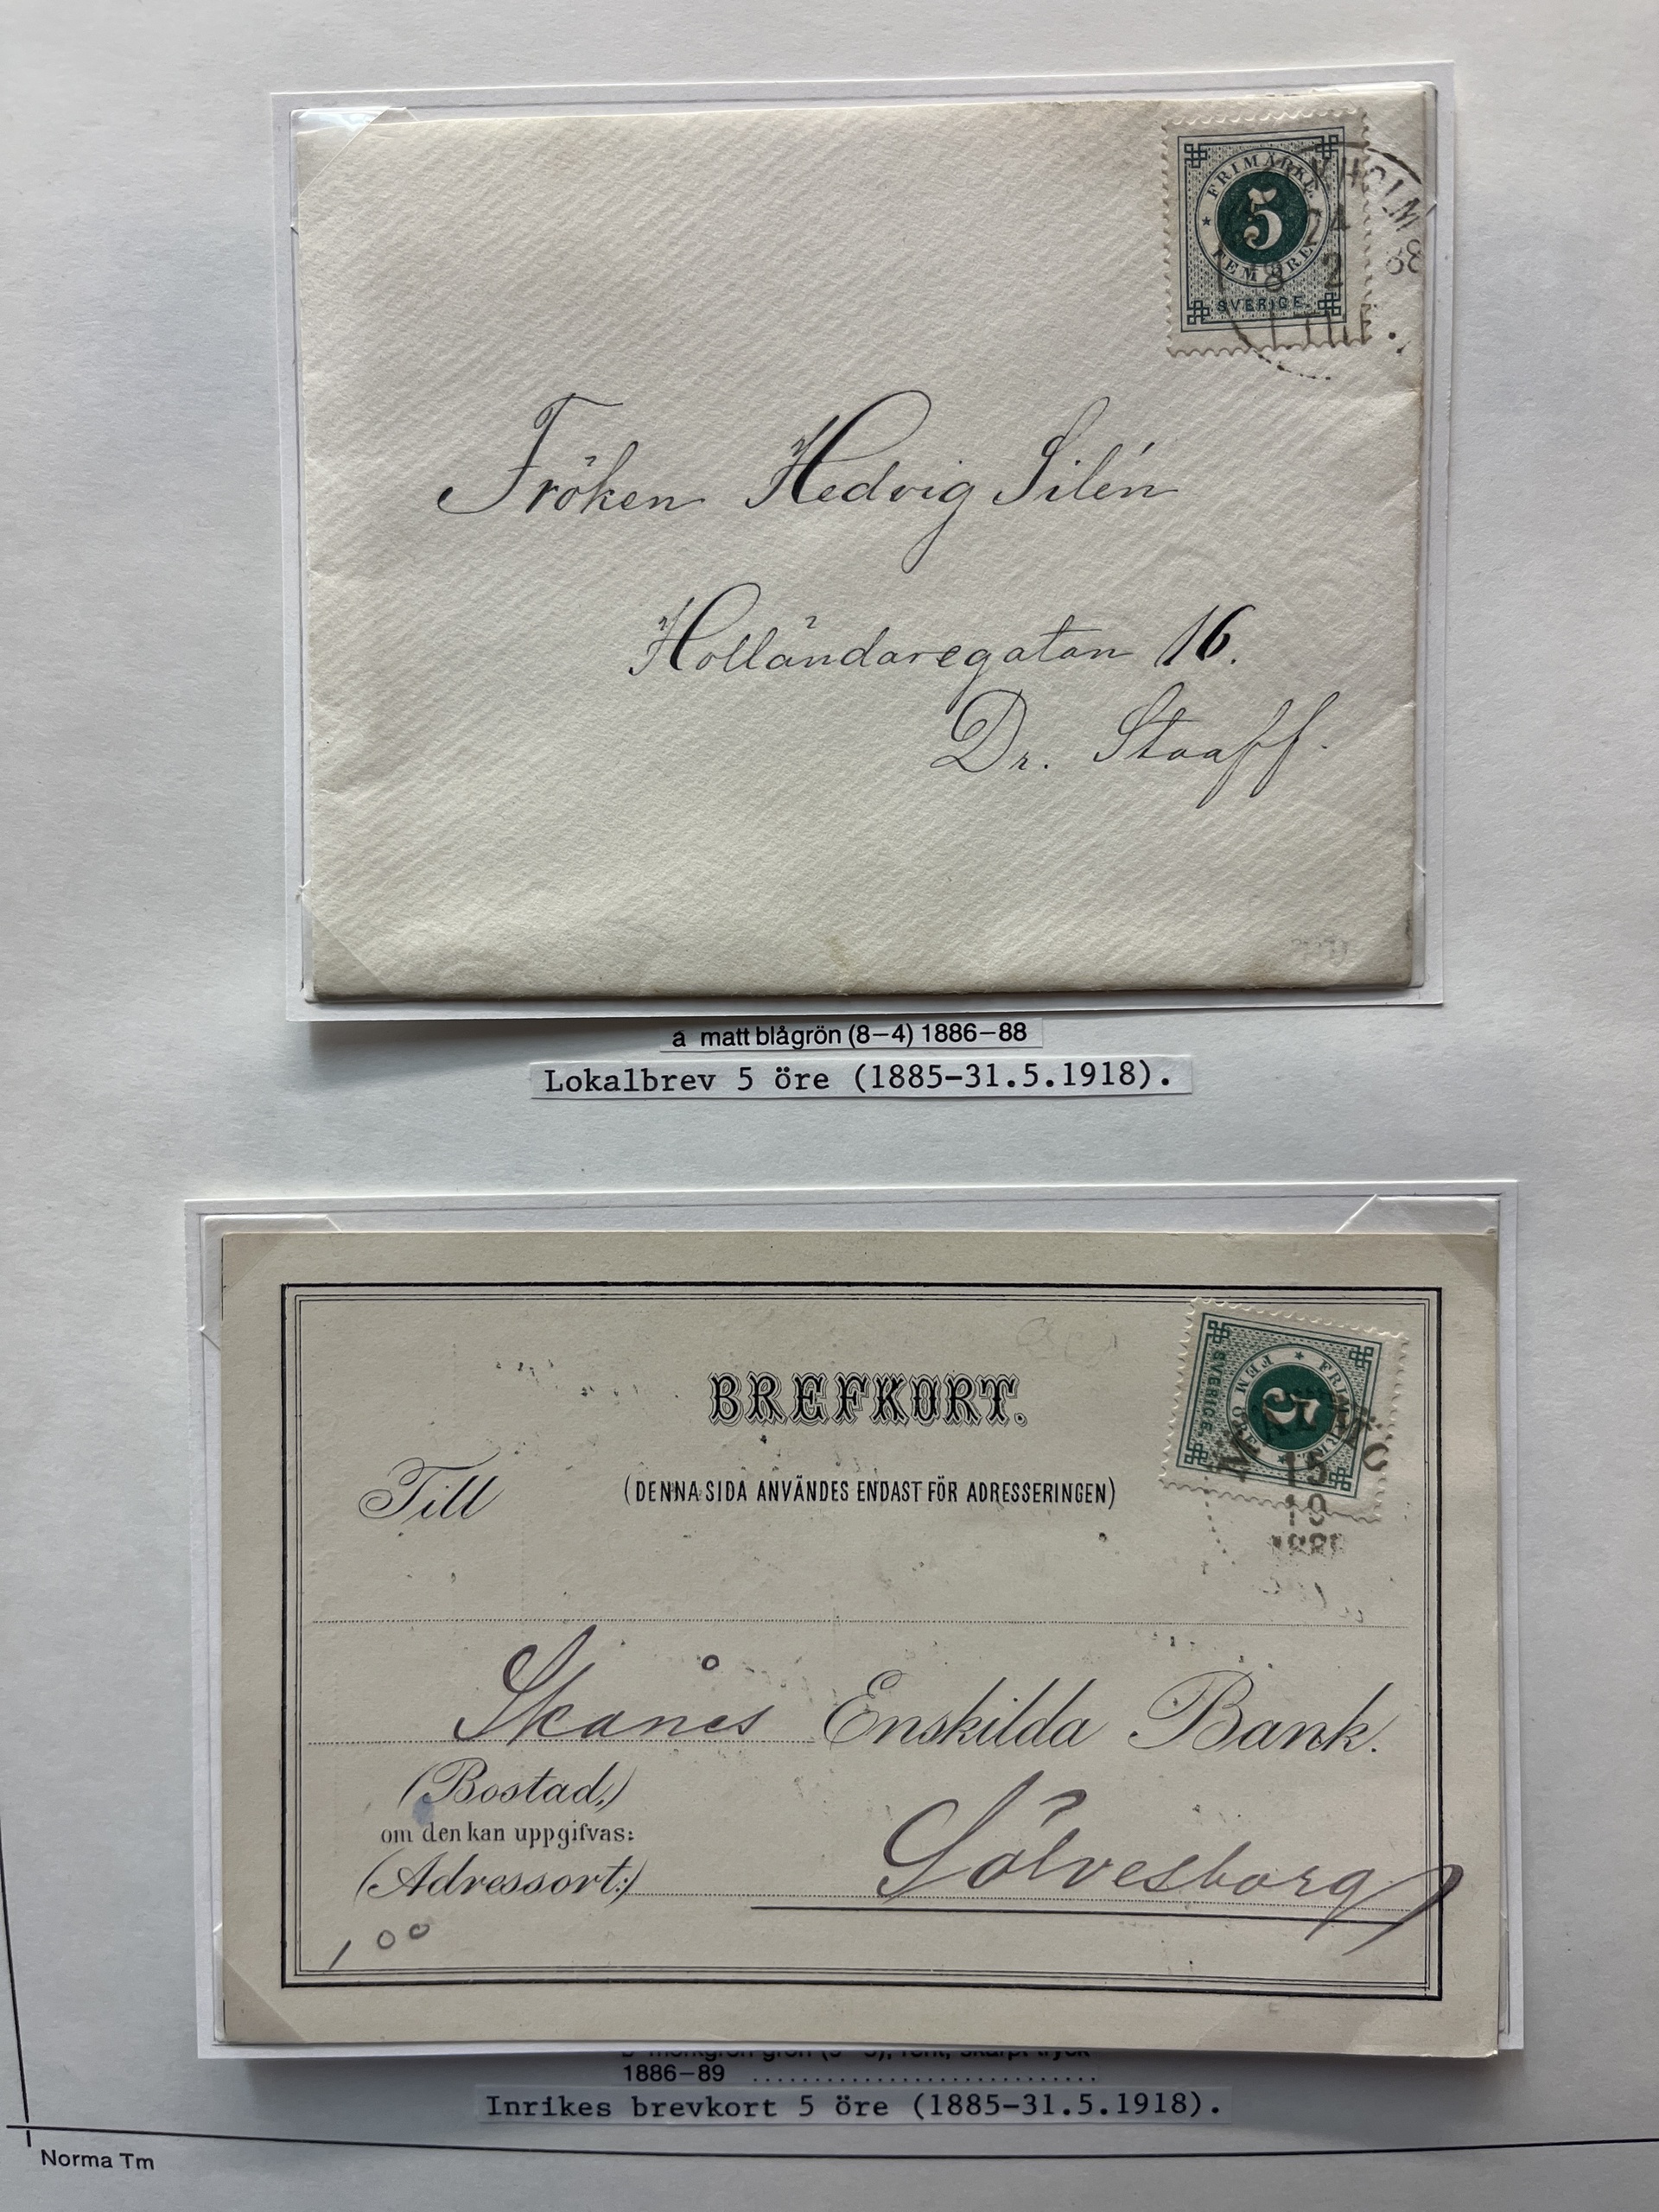 FRIMÄRKE
5
FEM ÖRE
SVERIGE.
HOLM
24
8 2 88
Fröken Hedvig Silén
Holländaregatan 16.
Dr. Staaff.
a matt blågrön (8–4) 1886–88
Lokalbrev 5 öre (1885-31.5.1918).
BREFKORT.
FRIMÄRKE
5
FEM ÖRE
SVERIGE.
15
10
Till
(DENNA SIDA ANVÄNDES ENDAST FÖR ADRESSERINGEN)
Skånes Enskilda Bank.
(Bostad,)
om den kan uppgifvas:
(Adressort:)
Sölvesborg
100
1886–89
Inrikes brevkort 5 öre (1885-31.5.1918).
Norma Tm